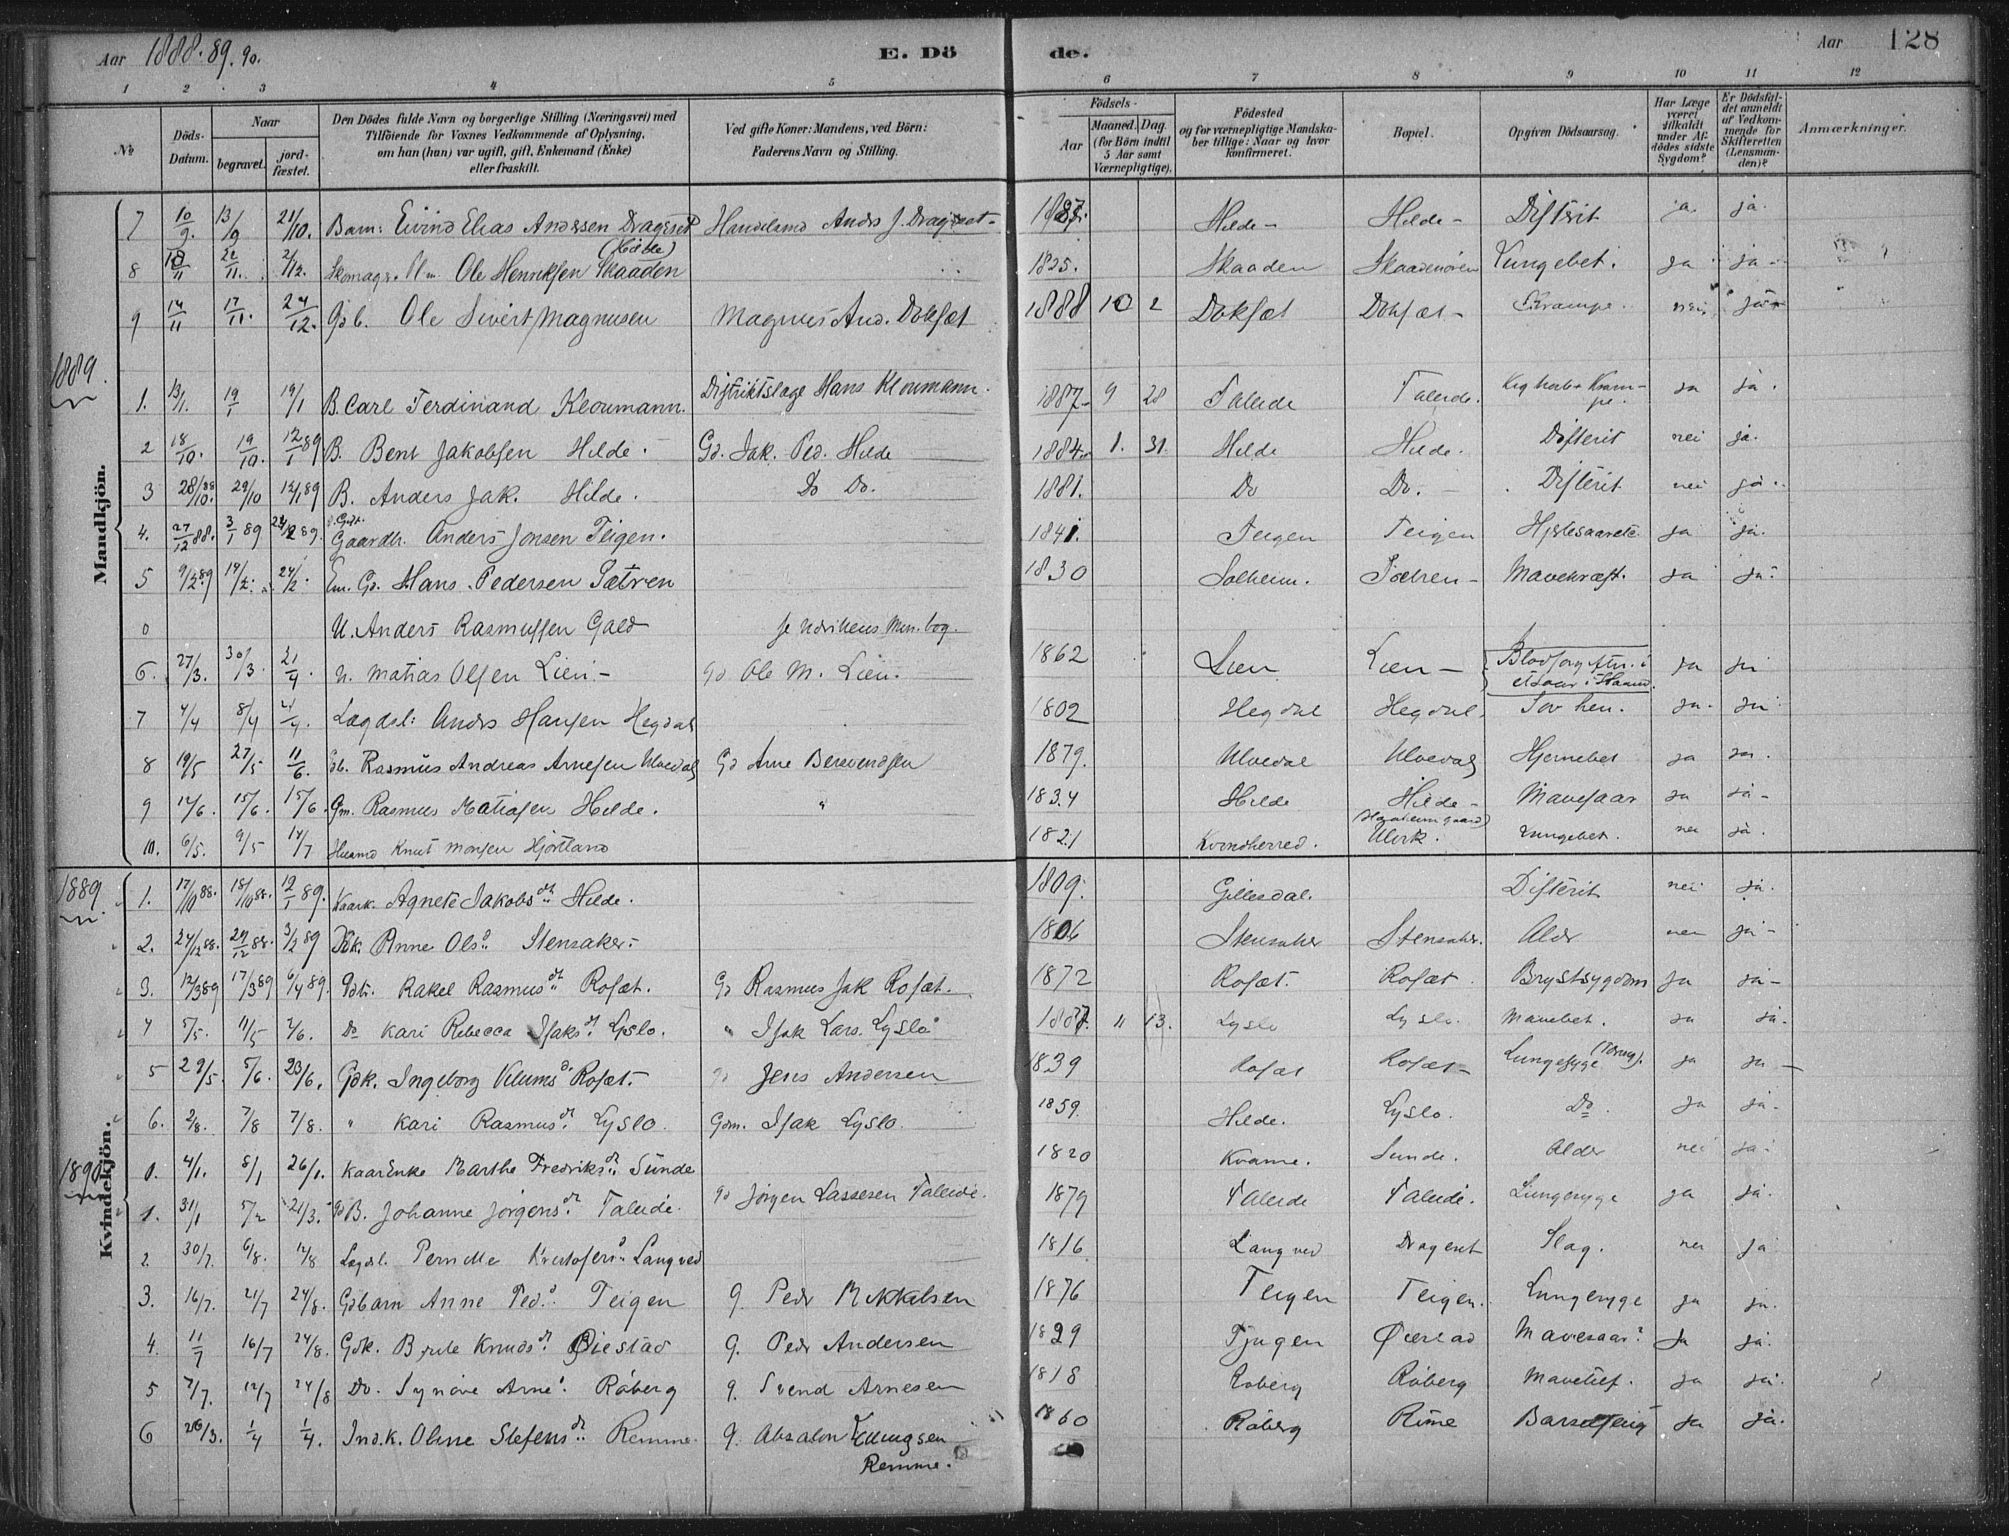 Aar 1888. 89. 90. E. Döde. Aar 128
1 2 3 4 5 6 7 8 9 10 11 12
No Döds-Datum. Naar begravet. jordfæstet. Den Dödes fulde Navn og borgerlige Stilling (Næringsvei) med Tilföiende for Voxnes Vedkommende af Oplysning, om han (hun) var ugift, gift, Enkemand (Enke) eller fraskilt. Ved gifte Koner: Mandens, ved Börn: Faderens Navn og Stilling. Födsels- Aar Maaned. Dag. (for Börn indtil 5 Aar samt Værnepligtige). Födested og for værnepligtige Mandskaber tillige: Naar og hvor konfirmeret. Bopæl. Opgiven Dödsaarsag. Har Læge været tilkaldt under Afdödes sidste Sygdom? Er Dödsfaldet anmeldt af Vedkommende for Skifteretten (Lensmanden)? Anmærkninger.
Mandkjön.
7 10/9. 13/9 21/10. Barn: Eivind Elias Anderssen Drageset Handelsmd Anders J. Dragset Hilde Hilde Difterit ja. ja.
8 /11 22/11. 2/12. Skomagr. Ole Henriksen Skaaden (Hilde) 1825. Skaaden Skaadenören Lungebet. ja ja
9 14/11 17/11. 24/12. Gdb. Ole Sivert Magnusen Magnus And. Doksæt 1888 10 2 Doksæt Doksæt Krampe. nei ja
1889.
1. 13/1. 19/1 19/1 B. Carl Ferdinand Kloumann. Distriktslæge Hans Kloumann. 1887 9 28 Taleide Taleide. Kighoste Krampe. ja ja.
2 18/10. 19/10. 12/1 89 B. Bent Jakobsen Hilde. Gd. Jak. Ped. Hilde 1884. 1. 31. Hilde Hilde. Difterit nei ja.
3 28/10. 88 29/10 12/1 89 B. Anders Jak. Hilde. Do Do. 1881. Do Do. Difterit nei ja.
4. 27/12 88. 3/1 89 24/2 89. Gaardb. Anders Jonsen Teigen. 1841. Teigen Teigen ja ja.
5 9/2 89 14/2. 24/2. Em. Gd. Hans Pedersen Sætren 1830 Solheim. Sætren Mavekræft. ja ja.
0 U. Anders Rasmussen Gald se Udvikens Min. bog.
6. 27/3. 30/3. 21/4. U. Matias Olsen Lien. Gd Ole M. Lien. 1862 Lien Lien ja ja
7 4/4 8/4 21/4. Lægdsl: Anders Hansen Hegdal 1802 Hegdal Hegdal. Sov hen. ja. ja
8 19/5 27/5 11/6. Gb. Rasmus Andreas Arnesen Ulvedal Gd Arne Bersvendsen 1879. Ulvedal Ulvedal Hjernebet ja ja.
9 12/6. 15/6. 15/6. Gm. Rasmus Matiasen Hilde. " 1834 Hilde Hilde Mavesaar ja ja
10. 6/5. 9/5 14/7 Husmd Knut Monsen Hjörtland 1821 Kvindherred. Ulvik. Lungebet. nei ja.
1889
Kvindekjön.
1. 17/10 88. 18/10 88. 12/1 89. Kaark. Agnete Jakobsdt Hilde. 1809. Gillesdal. Difterit nei ja.
2. 24/12 88. 29/12 88. 3/2 89 Kk. Anne Olsd. Stensaker. 1806 Stensaker Stensaker. Aldr nei ja
3. 12/3 89 17/3 89 6/4 89. Gdtr. Rakel Rasmusdt. Rosæt. Gd Rasmus Jak Rosæt. 1872 Rosæt. Rosæt Brystsygdom ja ja
4 5/5. 11/5 2/6. Do Kari Rebecca Isaksdt. Lyslo. " Isak Lars. Lyslo 1887. 11 13. Lyslo Lyslo. Mavebet. ja ja.
5 29/5. 5/6. 23/6. Gdk. Ingeborg Vilumsd. Rosæt. Gd Jens Andersen 1839 Rosæt Rosæt Lungesyge ja ja
6. 2/8. 7/8 7/8. " Kari Rasmusdt. Lyslo. Gdm. Isak Lyslo. 1859. Hilde. Lyslo. Do. ja ja.
1890
0. 4/1. 8/1 26/1. Kaarenke Marthe Fredriksdt. Sunde 1820 Kvame. Sunde. Alder nei ja.
1. 31/1 5/2 21/3. Gd B. Johanne Jörgensdt. Taleide. Gd Jörgen Lassesen Taleide. 1879 Taleide Taleide. Lungesyge ja ja.
2. 30/7. 6/8. 12/8 Lægdsl. Pernille Kristofersd. Langved 1816 Langved Drageset Slag. nei ja
3. 16/7. 21/7 24/8. Gdbarn Anne Pedd. Teigen G. Peder Mikkelsen 1876 Teigen Teigen. Lungesyge ja ja.
4. 11/7 16/7 24/8. Gdk. Byrte Knudsdt. Öiestad G. Peder Andersen 1829 Tjugen Öiestad Mavesaar ja ja.
5 7/7. 12/7 24/8 Do. Synöve Arned. Röberg G. Svend Arnesen 1818 Röberg Röberg ja ja.
6 26/3. 1/4 1/4. Ind.k. Oline Stefensdt. Remme. G. Absalon 1860 Röberg Rime Barselfeig ja ja.
Remme.